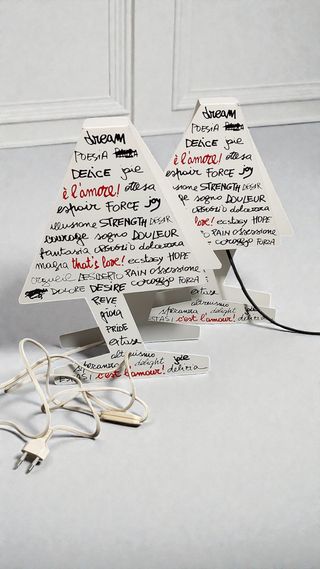 dream
POESIA
DELICE joie
è l'amore! attesa
espoir FORCE joy
illusione STRENGTH DESIR
courage sogno DOULEUR
fantasia dolcezza
magia that's love! ecstasy HOPE
DESIDERIO PAIN ossessione
DOLORE DESIRE coraggio FORZA
REVE
gioia
PRIDE
extase
altruismo joie
speranza delight
ESTASI c'est l'amour! delirio
dream
POESIA
DELICE joie
è l'amore! attesa
espoir FORCE joy
illusione STRENGTH DESIR
sogno DOULEUR
dolcezza
ecstasy HOPE
PAIN ossessione
coraggio FORZA
extase
altruismo
speranza delight
ESTASI c'est l'amour! delirio